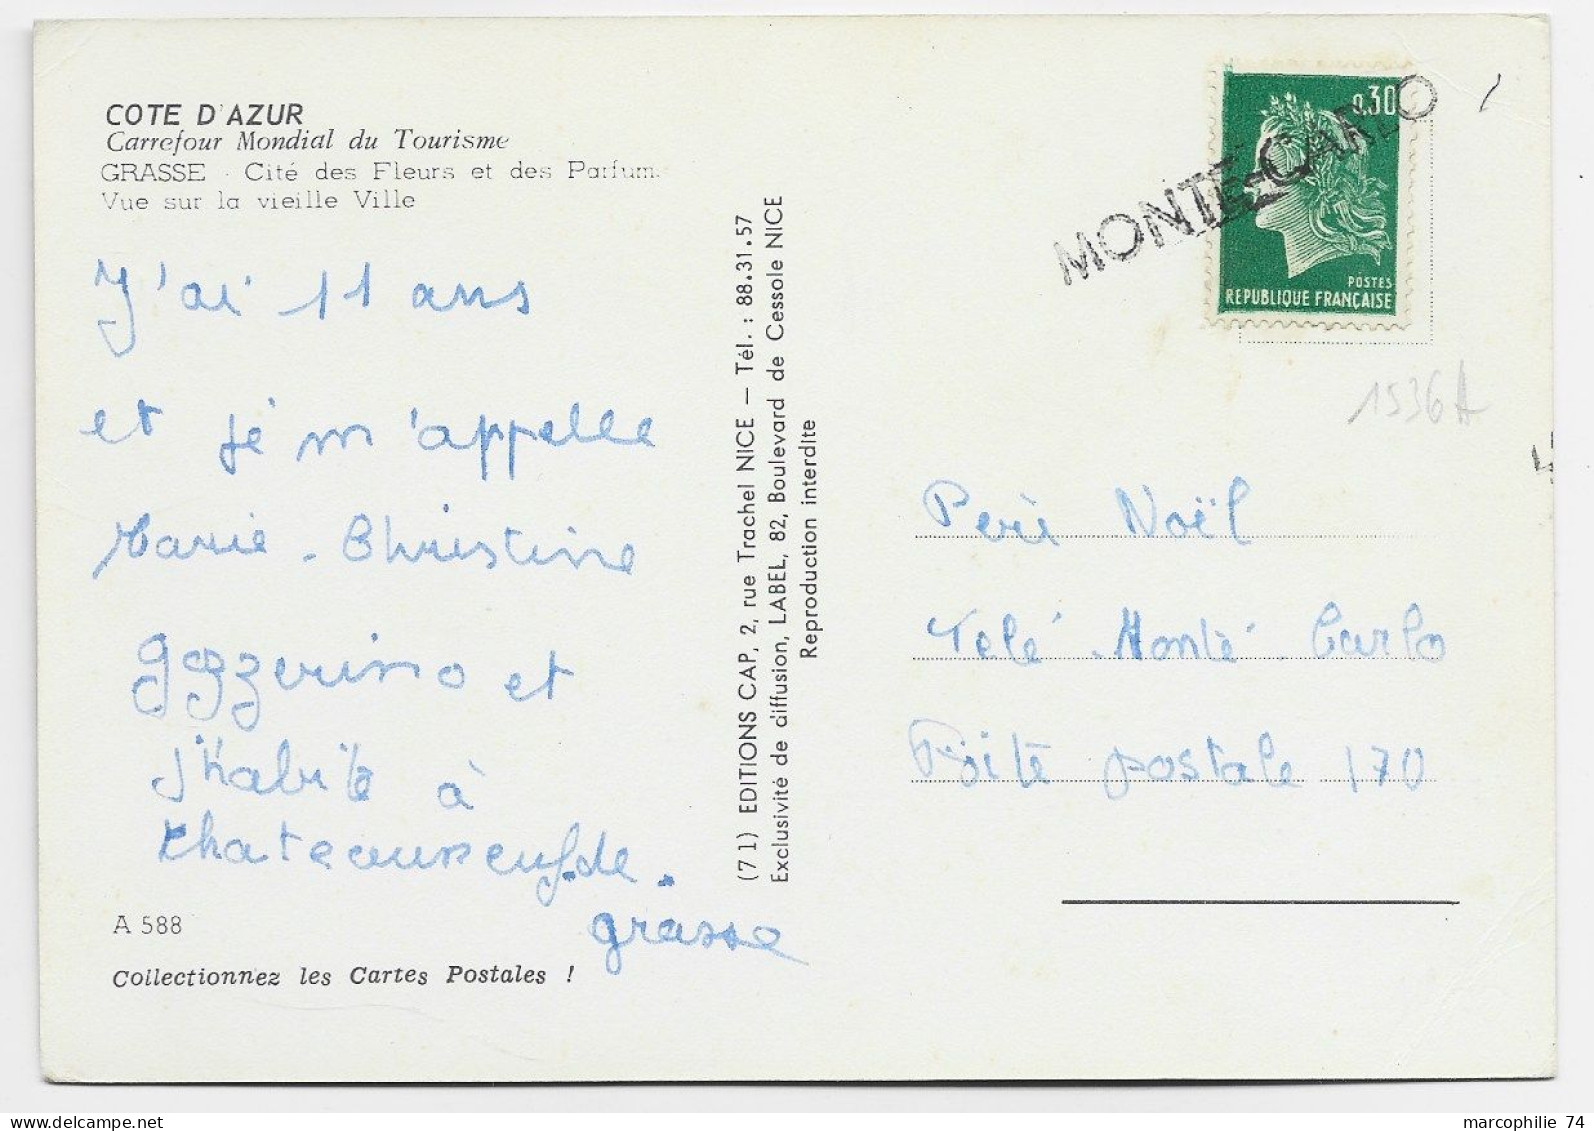 COTE D'AZUR
Carrefour Mondial du Tourisme
GRASSE - Cité des Fleurs et des Parfums
Vue sur la vieille Ville
J'ai 11 ans
et je m'appelle
Marie - Christine
gazzerino et
j'habite à
chateauneuf.de.
grasse
A 588
Collectionnez les Cartes Postales !
(71) EDITIONS CAP, 2, rue Trachel NICE — Tél. : 88.31.57
Exclusivité de diffusion, LABEL, 82, Boulevard de Cessole NICE
Reproduction interdite
MONTE-CARLO
0.30
POSTES
REPUBLIQUE FRANÇAISE
1536A
Perè Noël
Telé - Monté - Carlo
Boite postale 170
marcophilie 74